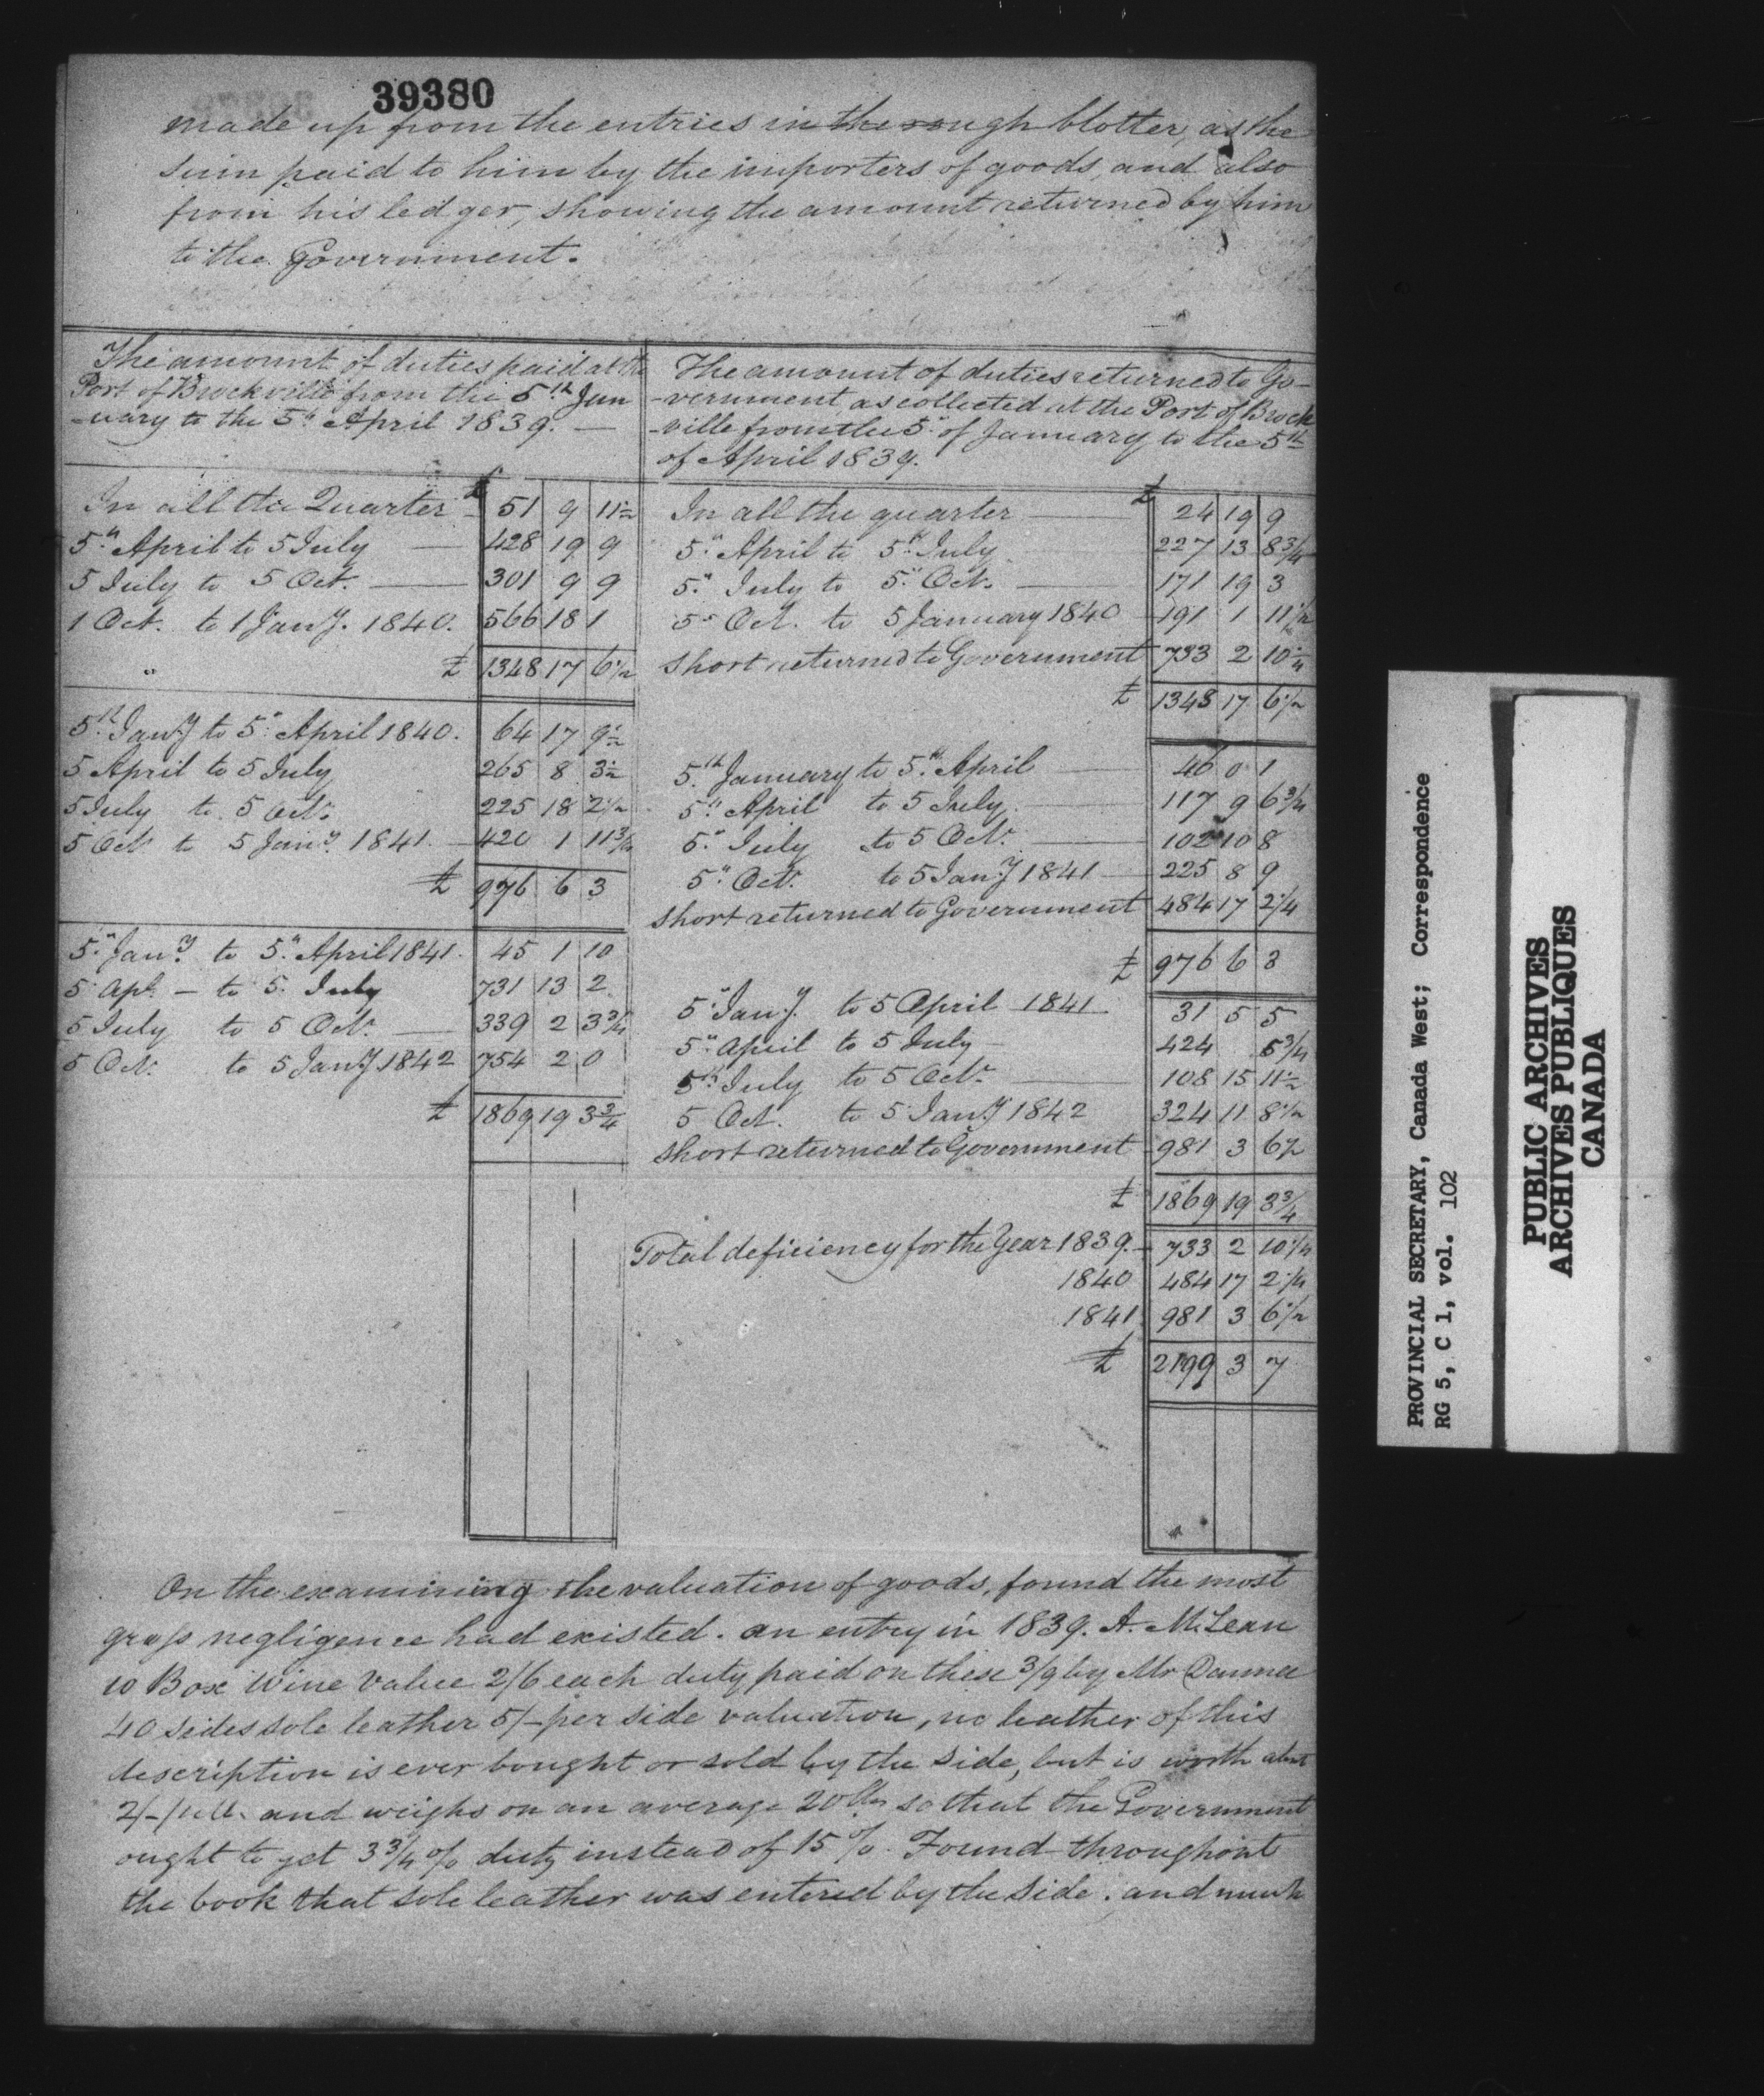 39380
made up from the entries in the rough blotter, as the
sum paid to him by the importers of goods, and also
from his ledger, showing the amount returned by him
to the Government.
The amount of duties paid at the
Port of Brockville from the 5th Jan
-uary to the 5th April 1839. —
In all the Quarter £ 51 9 11½
5th April to 5 July — 428 19 9
5 July to 5 Oct. — 301 9 9
1 Oct. to 1 Jany. 1840. 566 18 1
£ 1348 17 6½
5th Jany to 5th April 1840. 64 17 9½
5 April to 5 July 265 8 3½
5 July to 5 Oct. 225 18 2½
5 Oct to 5 Jany. 1841. 420 1 11¾
£ 976 6 3
5th Jany to 5th April 1841. 45 1 10
5 Apl. — to 5. July 731 13 2
5 July to 5 Oct. — 339 2 3¾
5 Oct. to 5 Jany 1842 754 2 0
£ 1869 19 3¾
The amount of duties returned to Go-
-vernment as collected at the Port of Brock
-ville from the 5th of January to the 5th
of April 1839.
In all the quarter — £ 24 19 9
5th April to 5th July 227 13 8¾
5th July to 5th Oct. — 171 19 3
5th Oct. to 5 January 1840 191 1 11½
Short returned to Government 733 2 10¼
£ 1348 17 6½
5th January to 5th April — 46 0 1
5th April to 5 July — 117 9 6¾
5th July to 5 Oct. — 102 10 8
5th Oct. to 5 Jany 1841 — 225 8 9
Short returned to Government 484 17 2¼
£ 976 6 3
5th Jany. to 5 April 1841 31 5 5
5th April to 5 July — 424 5¾
5th July to 5 Oct. — 108 15 11½
5 Oct. to 5 Jany 1842 324 11 8½
Short returned to Government 981 3 6½
£ 1869 19 3¾
Total deficiency for the Year 1839. — 733 2 10¼
1840 484 17 2¼
1841 981 3 6½
£ 2199 3 7
On the examining the valuation of goods, found the most
gross negligence had existed. an entry in 1839. A. McLean
10 Box Wine value 2/6 each duty paid on these 3/9 by Mr
40 sides sole leather 5/- per side valuation, no leather of this
description is ever bought or sold by the side, but is worth abt
2/- and weighs on an average 20 lbs so that the Government
ought to get 3¾ % duty instead of 15 %. Found throughout
the book that sole leather was entered by the side. and much
PROVINCIAL SECRETARY, Canada West; Correspondence
RG 5, C 1, vol. 102
PUBLIC ARCHIVES
ARCHIVES PUBLIQUES
CANADA